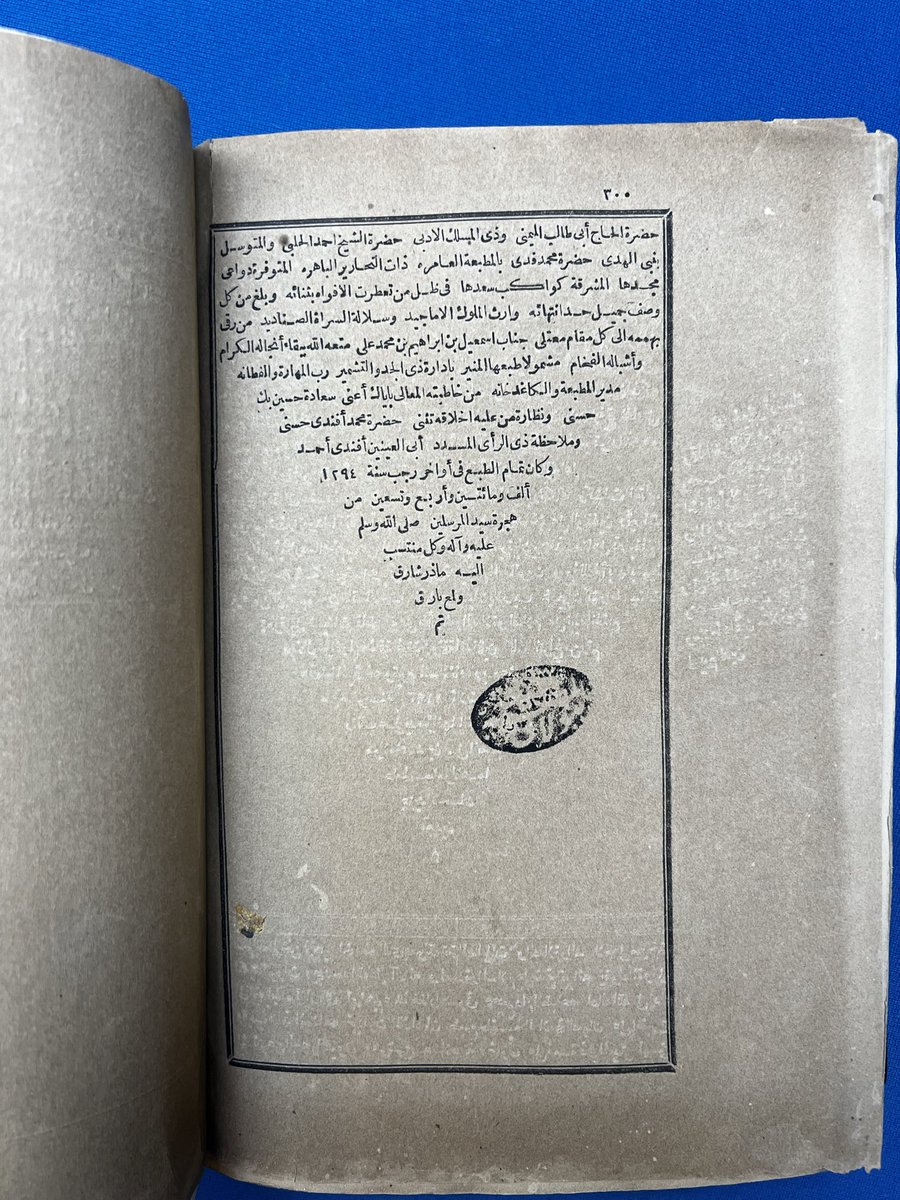 ٣٠٠
حضرة الحاج أبي طالب الميمني وذى المسلك الادبى حضرة الشيخ احمد الحلبي والمتوسل
بنبي الهدى حضرة محمد فدى بالمطبعة العامره ذات التحارير الباهره المتوفرة دواعى
مجدها المشرقة كواكب سعدها فى ظل من تعطرت الافواه بثنائه وبلغ من كل
وصف جميل حد انتهائه وارث الملوك الاماجيد وسلالة السراة الصناديد من رقى
بهممه الى كل مقام معتلى جناب اسمعيل بن ابراهيم بن محمد على متعه الله ببقاء أنجاله الكرام
وأشباله الفخام مشمولا طبعها المنير بادارة ذى الجد والتشمير رب المهارة والفطانه
مدير المطبعة والكاغدخانه من خاطبته المعالى باياك أعنى سعادة حسين بك
حسنى ونظارة من عليه اخلاقه تثنى حضرة محمد أفندى حسنى
وملاحظة ذى الرأى المسدد أبى العينين أفندى أحمد
وكان تمام الطبع فى أواخر رجب سنة ١٢٩٤
ألف ومائتين وأربع وتسعين من
هجرة سيد المرسلين صلى الله وسلم
عليه وآله وكل منتسب
اليه ماذر شارق
ولمع بارق
تم